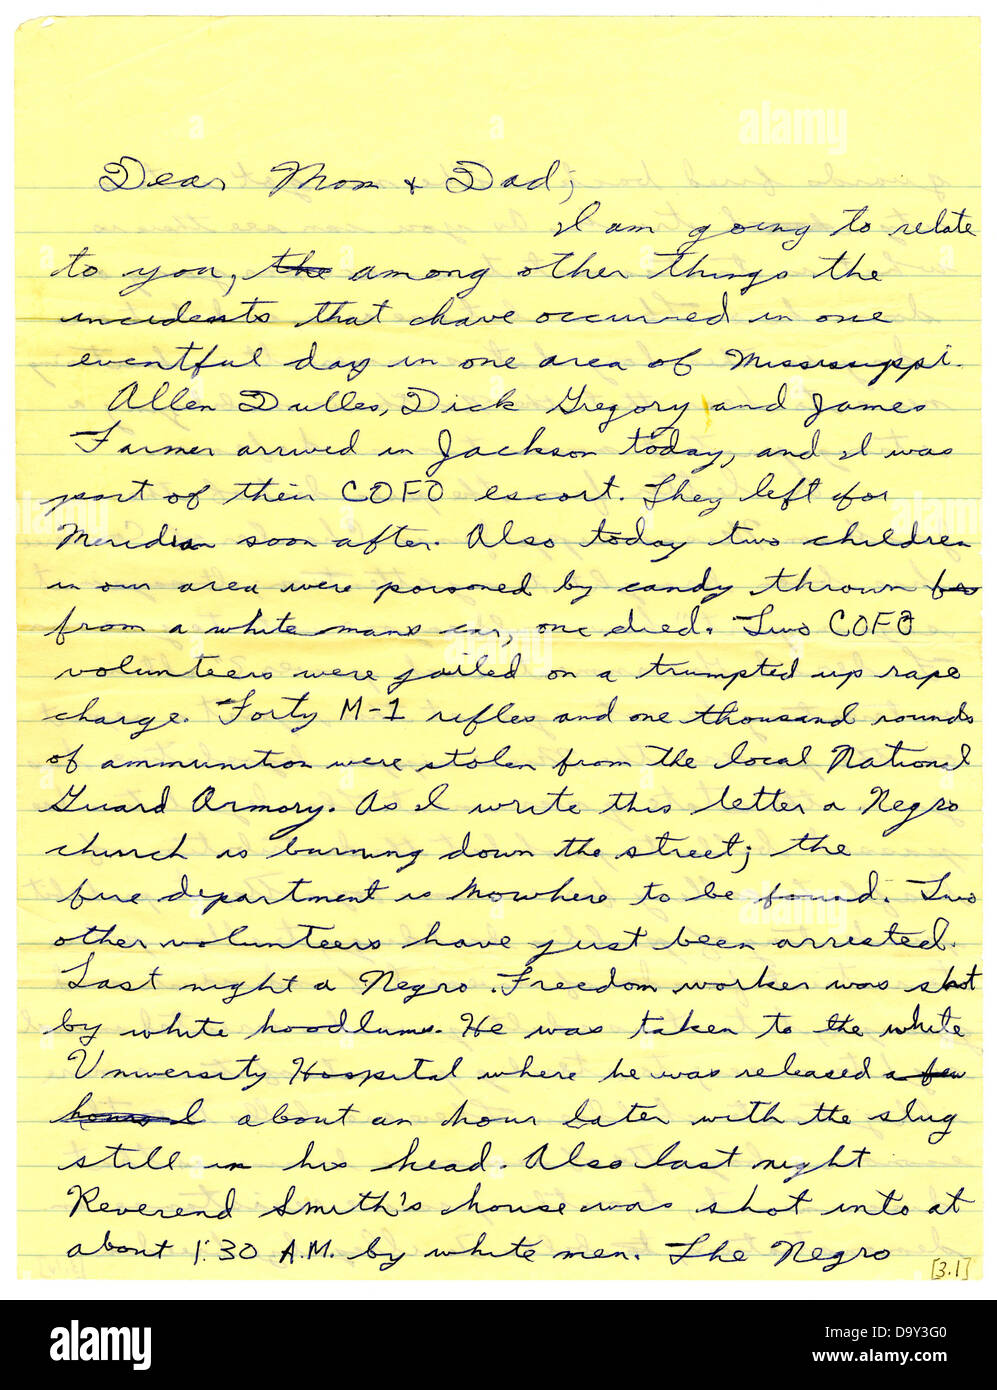 Dear Mom & Dad;
I am going to relate
to you, the among other things the
incidents that have occurred in one
eventful day in one area of Mississippi.
Allen Dulles, Dick Gregory and James
Farmer arrived in Jackson today, and I was
part of their COFO escort. They left for
Meridian soon after. Also today two children
in our area were poisoned by candy thrown
from a white mans car, one died. Two COFO
volunteers were jailed on a trumpted up rape
charge. Forty M-1 rifles and one thousand rounds
of ammunition were stolen from the local National
Guard Armory. As I write this letter a Negro
church is burning down the street; the
fire department is nowhere to be found. Two
other volunteers have just been arrested.
Last night a Negro Freedom worker was shot
by white hoodlums. He was taken to the white
University Hospital where he was released a few
hours about an hour later with the slug
still in his head. Also last night
Reverend Smith's house was shot into at
about 1:30 A.M. by white men. The Negro
[3.1]
alamy
Image ID: D9Y3G0
www.alamy.com